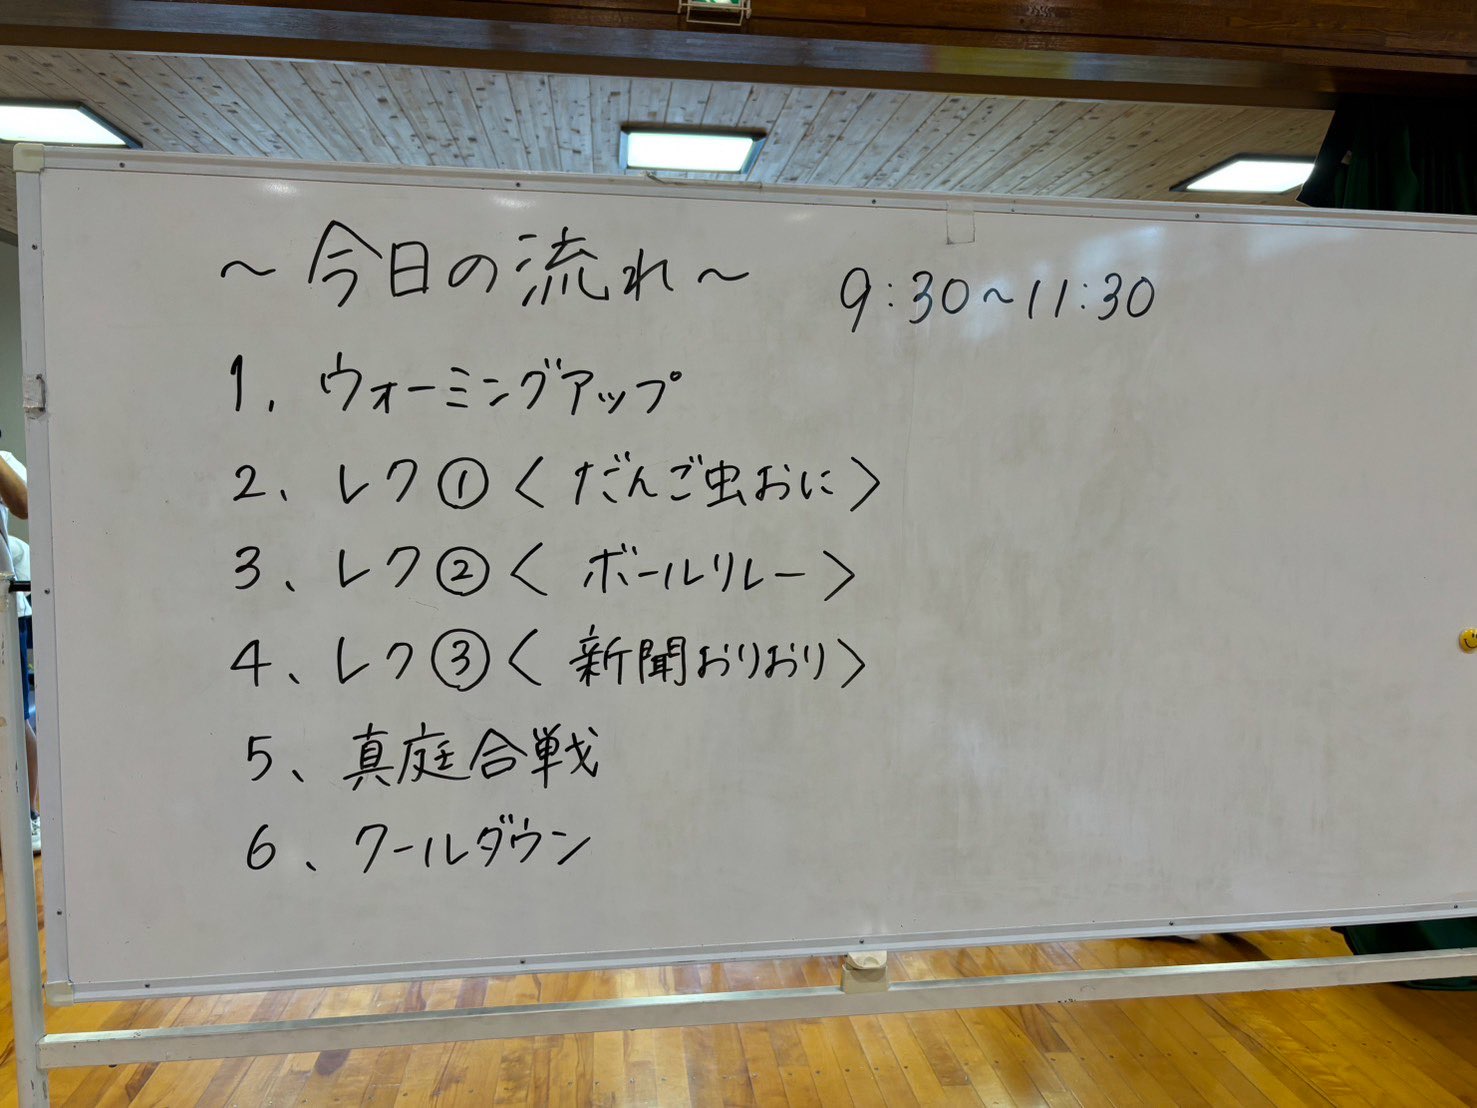 ～今日の流れ～ 9:30～11:30
1. ウォーミングアップ
2、レク①<だんご虫おに>
3、レク②<ボールリレー>
4、レク③<新聞おりおり>
5、真庭合戦
6、クールダウン